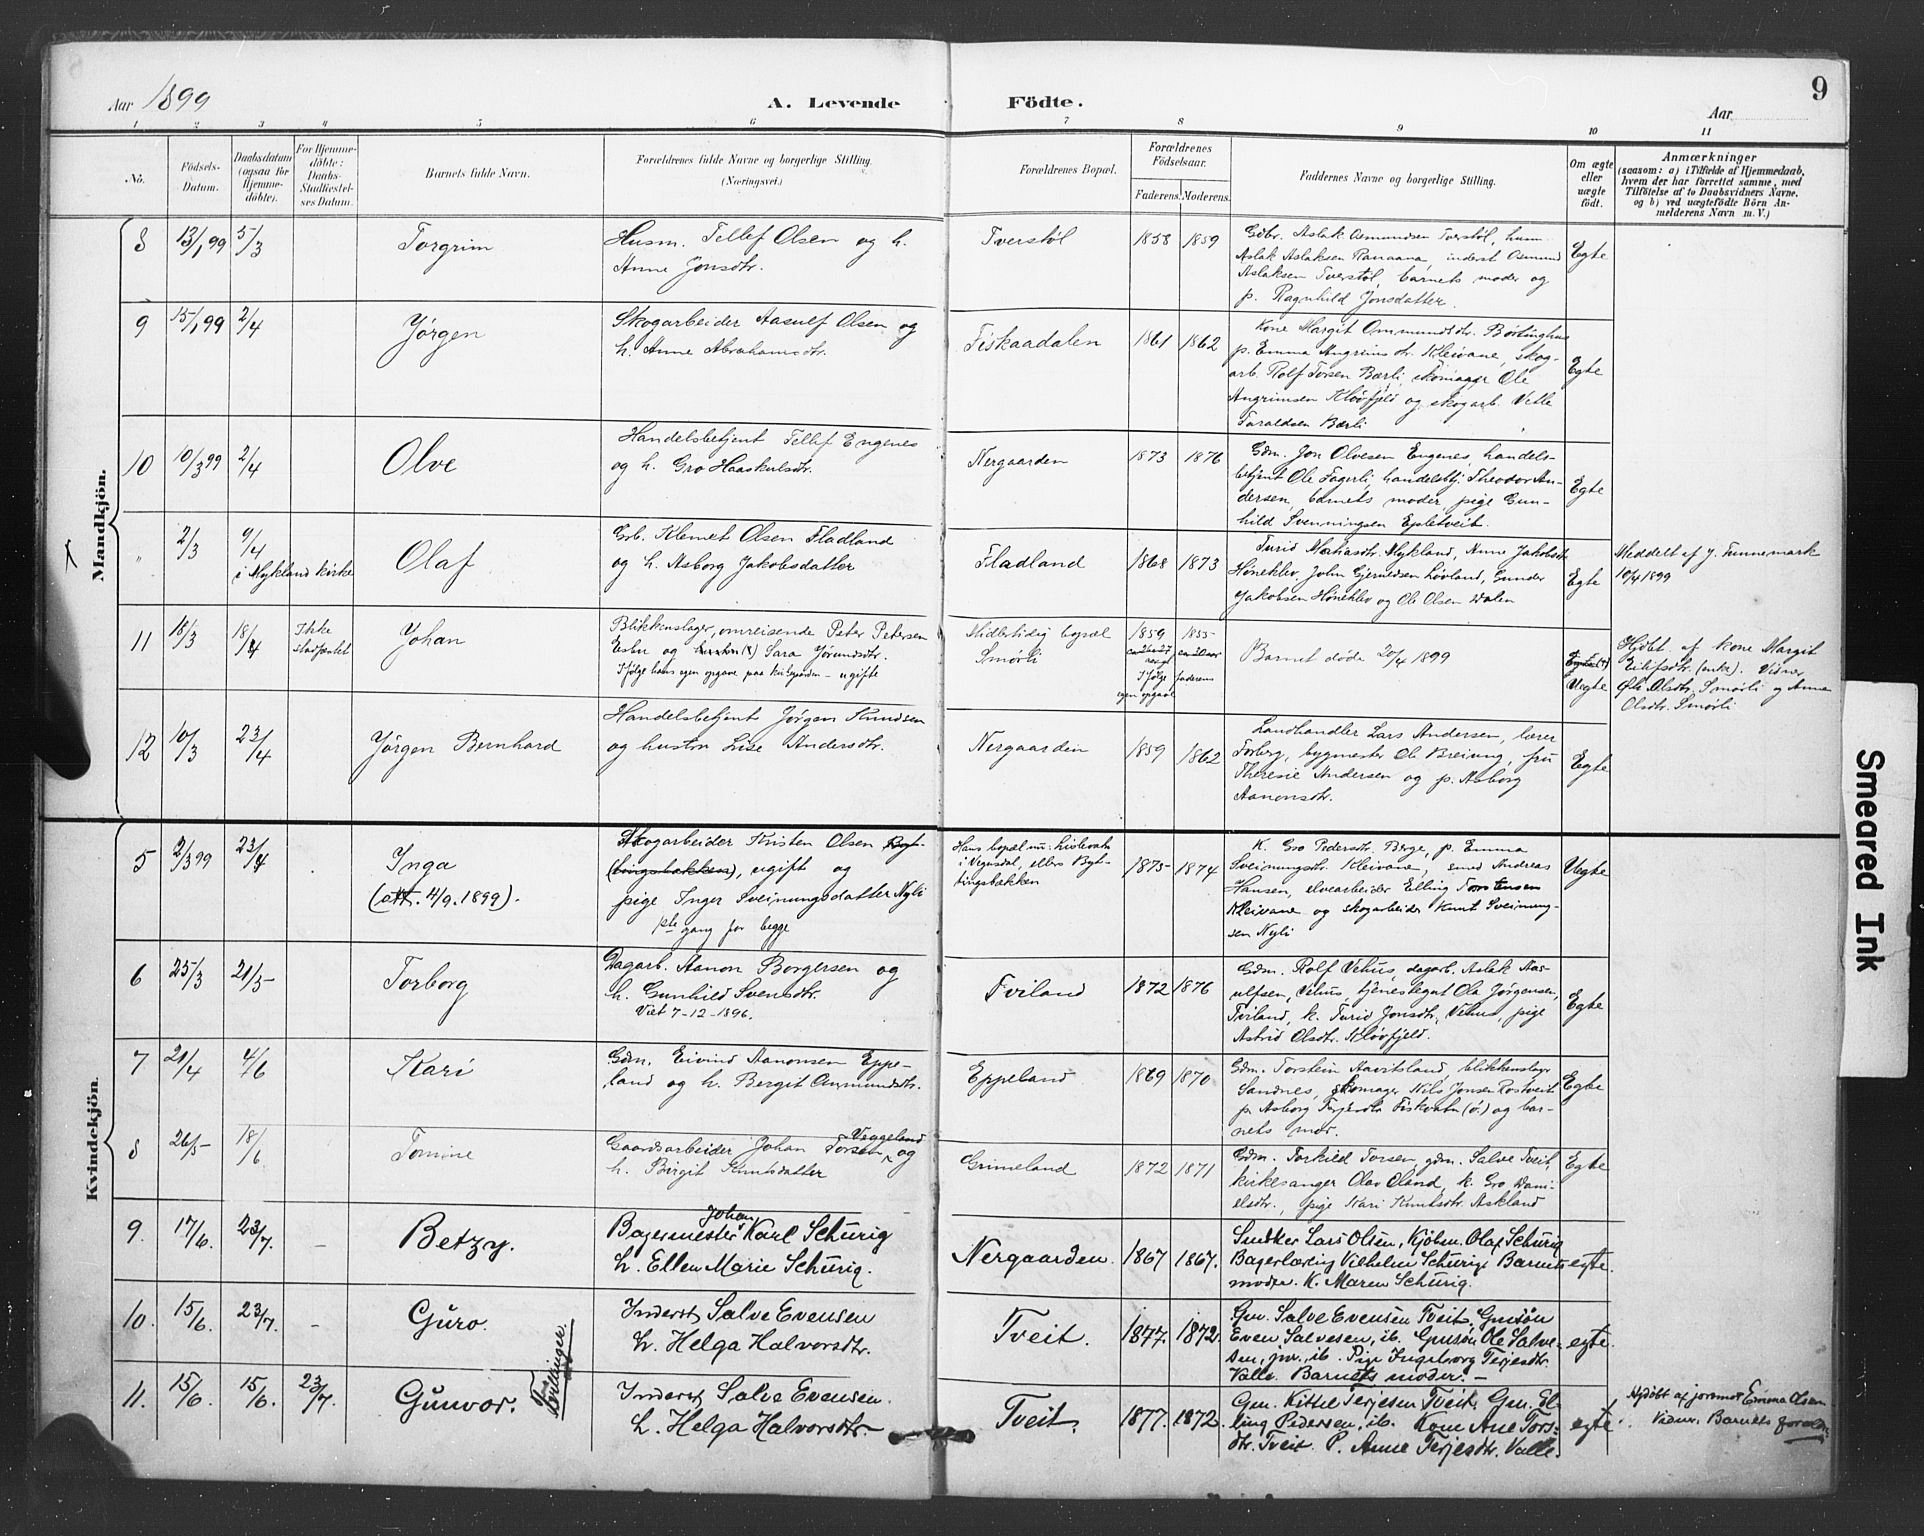 Aar 1899
A. Levende Födte.
Aar
9
1 2 3 4 5 6 7 8 9 10 11
No.
Födsels-Datum.
Daabsdatum (ogsaa for Hjemme-döbte).
For Hjemme-döbte: Daabs-Stadfæstel-ses Datum.
Barnets fulde Navn.
Forældrenes fulde Navne og borgerlige Stilling.
(Næringsvei.)
Forældrenes Bopæl.
Forældrenes Födselsaar.
Faderens. Moderens.
Faddernes Navne og borgerlige Stilling.
Om ægte eller uægte födt.
Anmærkninger
(saasom: a) i Tilfælde af Hjemmedaab,
hvem der har forrettet samme, med
Tilföielse af to Daabsvidners Navne.
og b) ved uægtefödte Börn An-
melderens Navn m. V.)
Mandkjön.
8 13/1 99 5/3 Torgrim
Husm. Tellef Olsen og h.
Anne Jonsdtr.
Tverstøl 1858 1859
Gdbr. Aslak Osmundsen Tverstøl, husm.
Aslak Aslaksen Ranaana, inderst Osmund
Aslaksen Tverstøl, barnets moder og
p. Ragnhild Jonsdatter.
Egte
9 15/1 99 2/4 Jörgen
Skogarbeider Aasulf Olsen og
h. Anne Abrahamsdtr.
Fiskaadalen 1861 1862
Kone Margit Ommundsdtr.
p. Emma Angrimsdtr. Kleivane, skog-
arb. Rolf Torsen Bærli, skomager Ole
Angrimsen Kløvfjeld og skogarb. Vetle
Taraldsen Bærli
Egte
10 10/3 99 2/4 Olve
Handelsbetjent Tellef Engenes
og h. Gro Haaskulsdtr.
Nergaarden 1873 1876
Gdm. Jon Olvesen Engenes, handels-
betjent Ole Fagerli, handelsbtj. Theodor An-
dersen, barnets moder, pige Gun-
hild Svenningsen Epletveit.
Egte
" 2/3 9/4
i Mykland kirke
Olaf
Grb. Klemet Olsen Fladland
og h. Asborg Jakobsdatter
Fladland 1868 1873
Turid Mathiasdtr. Mykland, Anne Jakobsdtr.
Hønekløv, John Gjermundsen Løvland, Gunder
Jakobsen Hønekløv og Ole Olsen Dalen
Egte
Meddelt af J. Tunnemark
10/4 1899
11 18/3 18/4 Ikke stadfæstet Johan
Blikkenslager, omreisende Peter Petersen
og hustru (?) Sara Jörundsdtr.
Ifølge hans egen opgave paa kirkegaarden - ugifte
Midlertidig bopæl
Smørli
1859 1855
Ifølge faderens
egen opgave
Barnet døde 20/4 1899
Uegte
Hjdbt. af kone Margit
Eilifsdtr. (enke). Vidner
Olsdtr. Smørli og Anne
Olsdtr. Smørli
12 10/3 23/4 Jörgen Bernhard
Handelsbetjent Jörgen Knudsen
og hustru Lise Andersdtr.
Nergaarden 1859 1862
Landhandler Lars Andersen, lærer
Torberg, bygmester Ole Breiung, fru
Theresie Andersen og p. Asborg
Aanonsdtr.
Egte
Kvindekjön.
5 2/3 99 23/4 Inga
(att. 4/9. 1899).
Skogarbeider Kristen Olsen Byt-
(tingsbakken), ugift og
pige Inger Sveinungsdatter Nyli
1ste gang for begge
Hans bopæl nu:
i Vegusdal, ellers Byt-
tingsbakken
1875 1874
K. Gro Pedersdtr. Berge, p. Emma
Sveinungsdtr. Kleivane, smed Andreas
Hansen, elvearbeider Elling Torstensen
Kleivane og skogarbeider Knut Sveinung-
sen Nyli
Uegte
6 25/3 21/5 Torborg
Dagarb. Aanon Borgersen og
h. Gunhild Svensdtr.
Viet 7-12-1896.
Tviland 1872 1876
Gdm. Rolf Vehus, dagarb. Aslak Aas-
ulfsen, Vehus, tjenestegut Ola Jørgensen,
Tviland, k. Turid Jonsdtr, Vehus, pige
Astrid Olsdtr. Kløvfjeld.
Egte
7 21/4 4/6 Kari
Gdm. Eivind Aanonsen Eppe-
land og h. Bergit Ommundsdtr.
Eppeland 1869 1870
Gdm. Torstein Aavitsland, blikkenslager
Sandnes, skomager Nils Jonsen Rostveit
p. Asborg Terjesdtr. Fiskvatn (ö.) og bar-
nets mor.
Egte
8 26/5 18/6 Tomine
Gaardsarbeider Johan Torsen Veggeland og
h. Birgit Knutsdatter
Grimeland 1872 1871
Gdm. Torkild Torsen, gdm. Salve Tveit,
kirkesanger Olav Oland, k. Gro Dani-
elsdtr., pige Kari Knutsdtr. Askland
Egte
9. 17/6. 23/7. - Betzy.
Bagermester Johan Karl Schürig
h. Ellen Marie Schürig.
Nergaarden. 1867 1867.
Snedker Lars Olsen, Kjøbm. Olaf Schürig
Bagerlærling Vilhelm Schürig, Barnets
moder. K. Maren Schürig.
egte.
10. 15/6. 23/7. - Guro.
Inderst Salve Evensen
h. Helga Halvorsdtr.
Tveit. 1877. 1872.
Gm. Salve Evensen Tveit, Gmsøn
Even Salvesen, ib. Gmsøn Ole Salve-
sen, jnr., ib. Pige Ingeborg Terjesdtr.
Valle. Barnets moder. -
egte.
Tvillinger.
11. 15/6. 15/6. 23/7. Gunvor.
Inderst Salve Evensen.
h. Helga Halvorsdtr. -
Tveit. 1877. 1872.
Gm. Kittel Terjesen Tveit, Gm. El-
ling Pedersen, ib. Kone Ane Tors-
dtr. Tveit. P. Anne Terjesdtr. Valle.
egte.
Hjdøbt af jormor Emma Olsen
Vidner Barnets foreldre
Smeared Ink